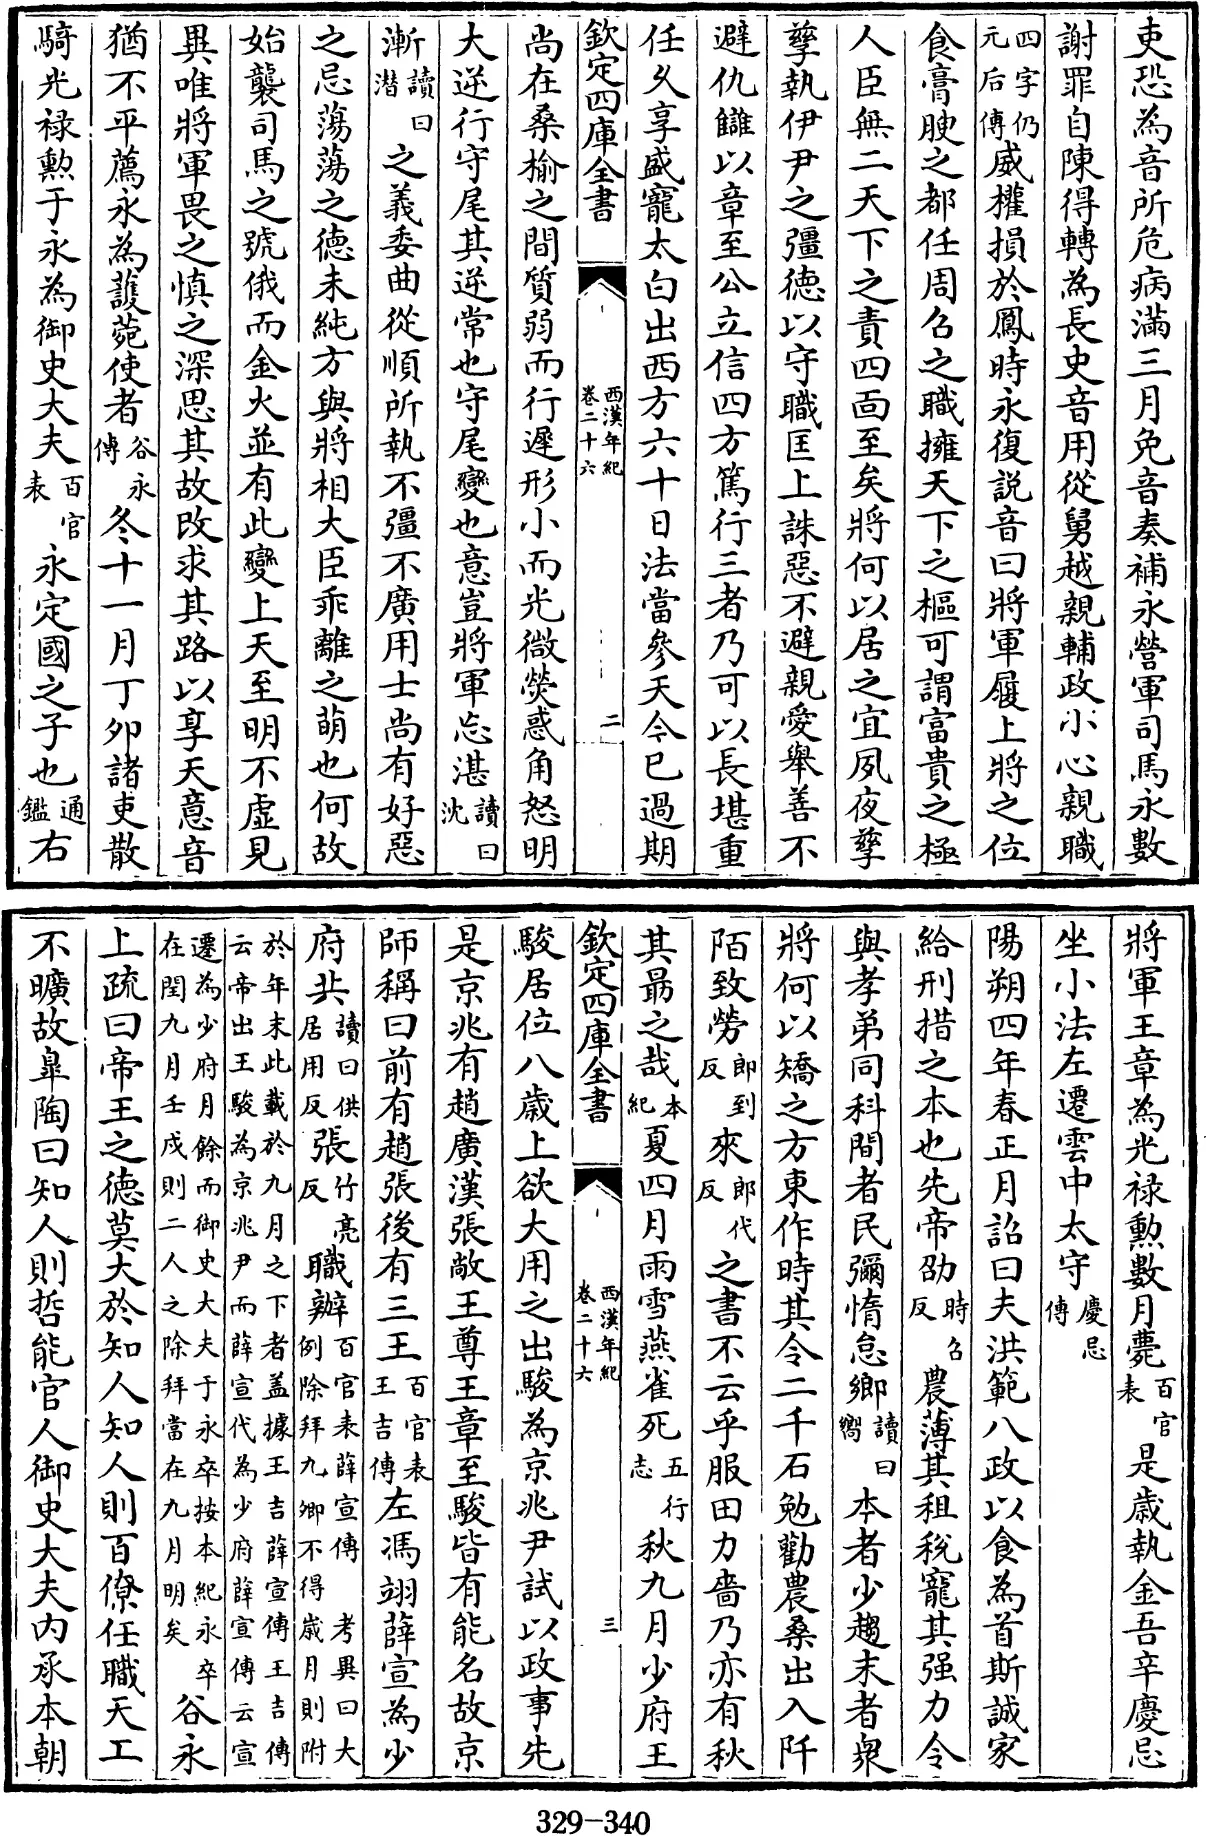 吏恐為音所危病滿三月免音奏補永營軍司馬永數
謝罪自陳得轉為長史音用從舅越親輔政小心親職
四字仍元后傳威權損於鳳時永復說音曰將軍履上將之位
食膏腴之都任周召之職擁天下之樞可謂富貴之極
人臣無二天下之責四面至矣將何以居之宜夙夜孳
孳執伊尹之彊德以守職匡上誅惡不避親愛舉善不
避仇讎以章至公立信四方篤行三者乃可以長堪重
任久享盛寵太白出西方六十日法當參天今已過期
欽定四庫全書 西漢年紀卷二十六 二
尚在桑榆之間質弱而行遲形小而光微熒惑角怒明
大逆行守尾其逆常也守尾變也意豈將軍忘湛讀曰沈
漸讀曰潛之義委曲從順所執不彊不廣用士尚有好惡
之忌蕩蕩之德未純方與將相大臣乖離之萌也何故
始襲司馬之號俄而金火並有此變上天至明不虛見
異唯將軍畏之慎之深思其故改求其路以享天意音
猶不平薦永為護菀使者谷永傳冬十一月丁卯諸吏散
騎光祿勲于永為御史大夫百官表永定國之子也通鑑右
將軍王章為光祿勲數月薨百官表是歲執金吾辛慶忌
坐小法左遷雲中太守慶忌傳
陽朔四年春正月詔曰夫洪範八政以食為首斯誠家
給刑措之本也先帝劭時召反農薄其租稅寵其强力令
與孝弟同科間者民彌惰怠鄉讀曰嚮本者少趨末者衆
將何以矯之方東作時其令二千石勉勸農桑出入阡
陌致勞郎到反來郎代反之書不云乎服田力嗇乃亦有秋
其朂之哉本紀夏四月雨雪燕雀死五行志秋九月少府王
欽定四庫全書 西漢年紀卷二十六 三
駿居位八歲上欲大用之出駿為京兆尹試以政事先
是京兆有趙廣漢張敞王尊王章至駿皆有能名故京
師稱曰前有趙張後有三王百官表王吉傳左馮翊薛宣為少
府共讀曰供居用反張竹亮反職辦百官表薛宣傳 考異曰大例除拜九卿不得歲月則附
於年末此載於九月之下者蓋據王吉薛宣傳王吉傳云帝出王駿為京兆尹而薛宣代為少府薛宣傳云宣
遷為少府月餘而御史大夫于永卒按本紀永卒在閏九月壬戌則二人之除拜當在九月明矣谷永
上疏曰帝王之德莫大於知人知人則百僚任職天工
不曠故臯陶曰知人則哲能官人御史大夫内承本朝
329-340